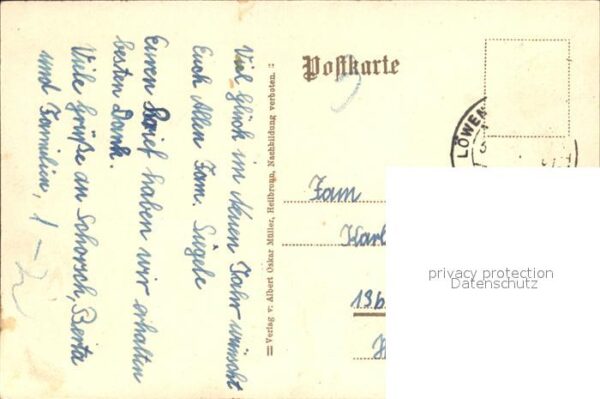 Viel Glück im Neuen Jahr wünscht
Euch Allen Fam. Sügele
Euren Brief haben wir erhalten
besten Dank.
Viele Grüße an Schorsch, Berta
und Familien,
= Verlag v. Albert Oskar Müller, Heilbronn, Nachbildung verboten. ::
Postkarte
LÖWEN
Fam
Karl
13b
privacy protection
Datenschutz